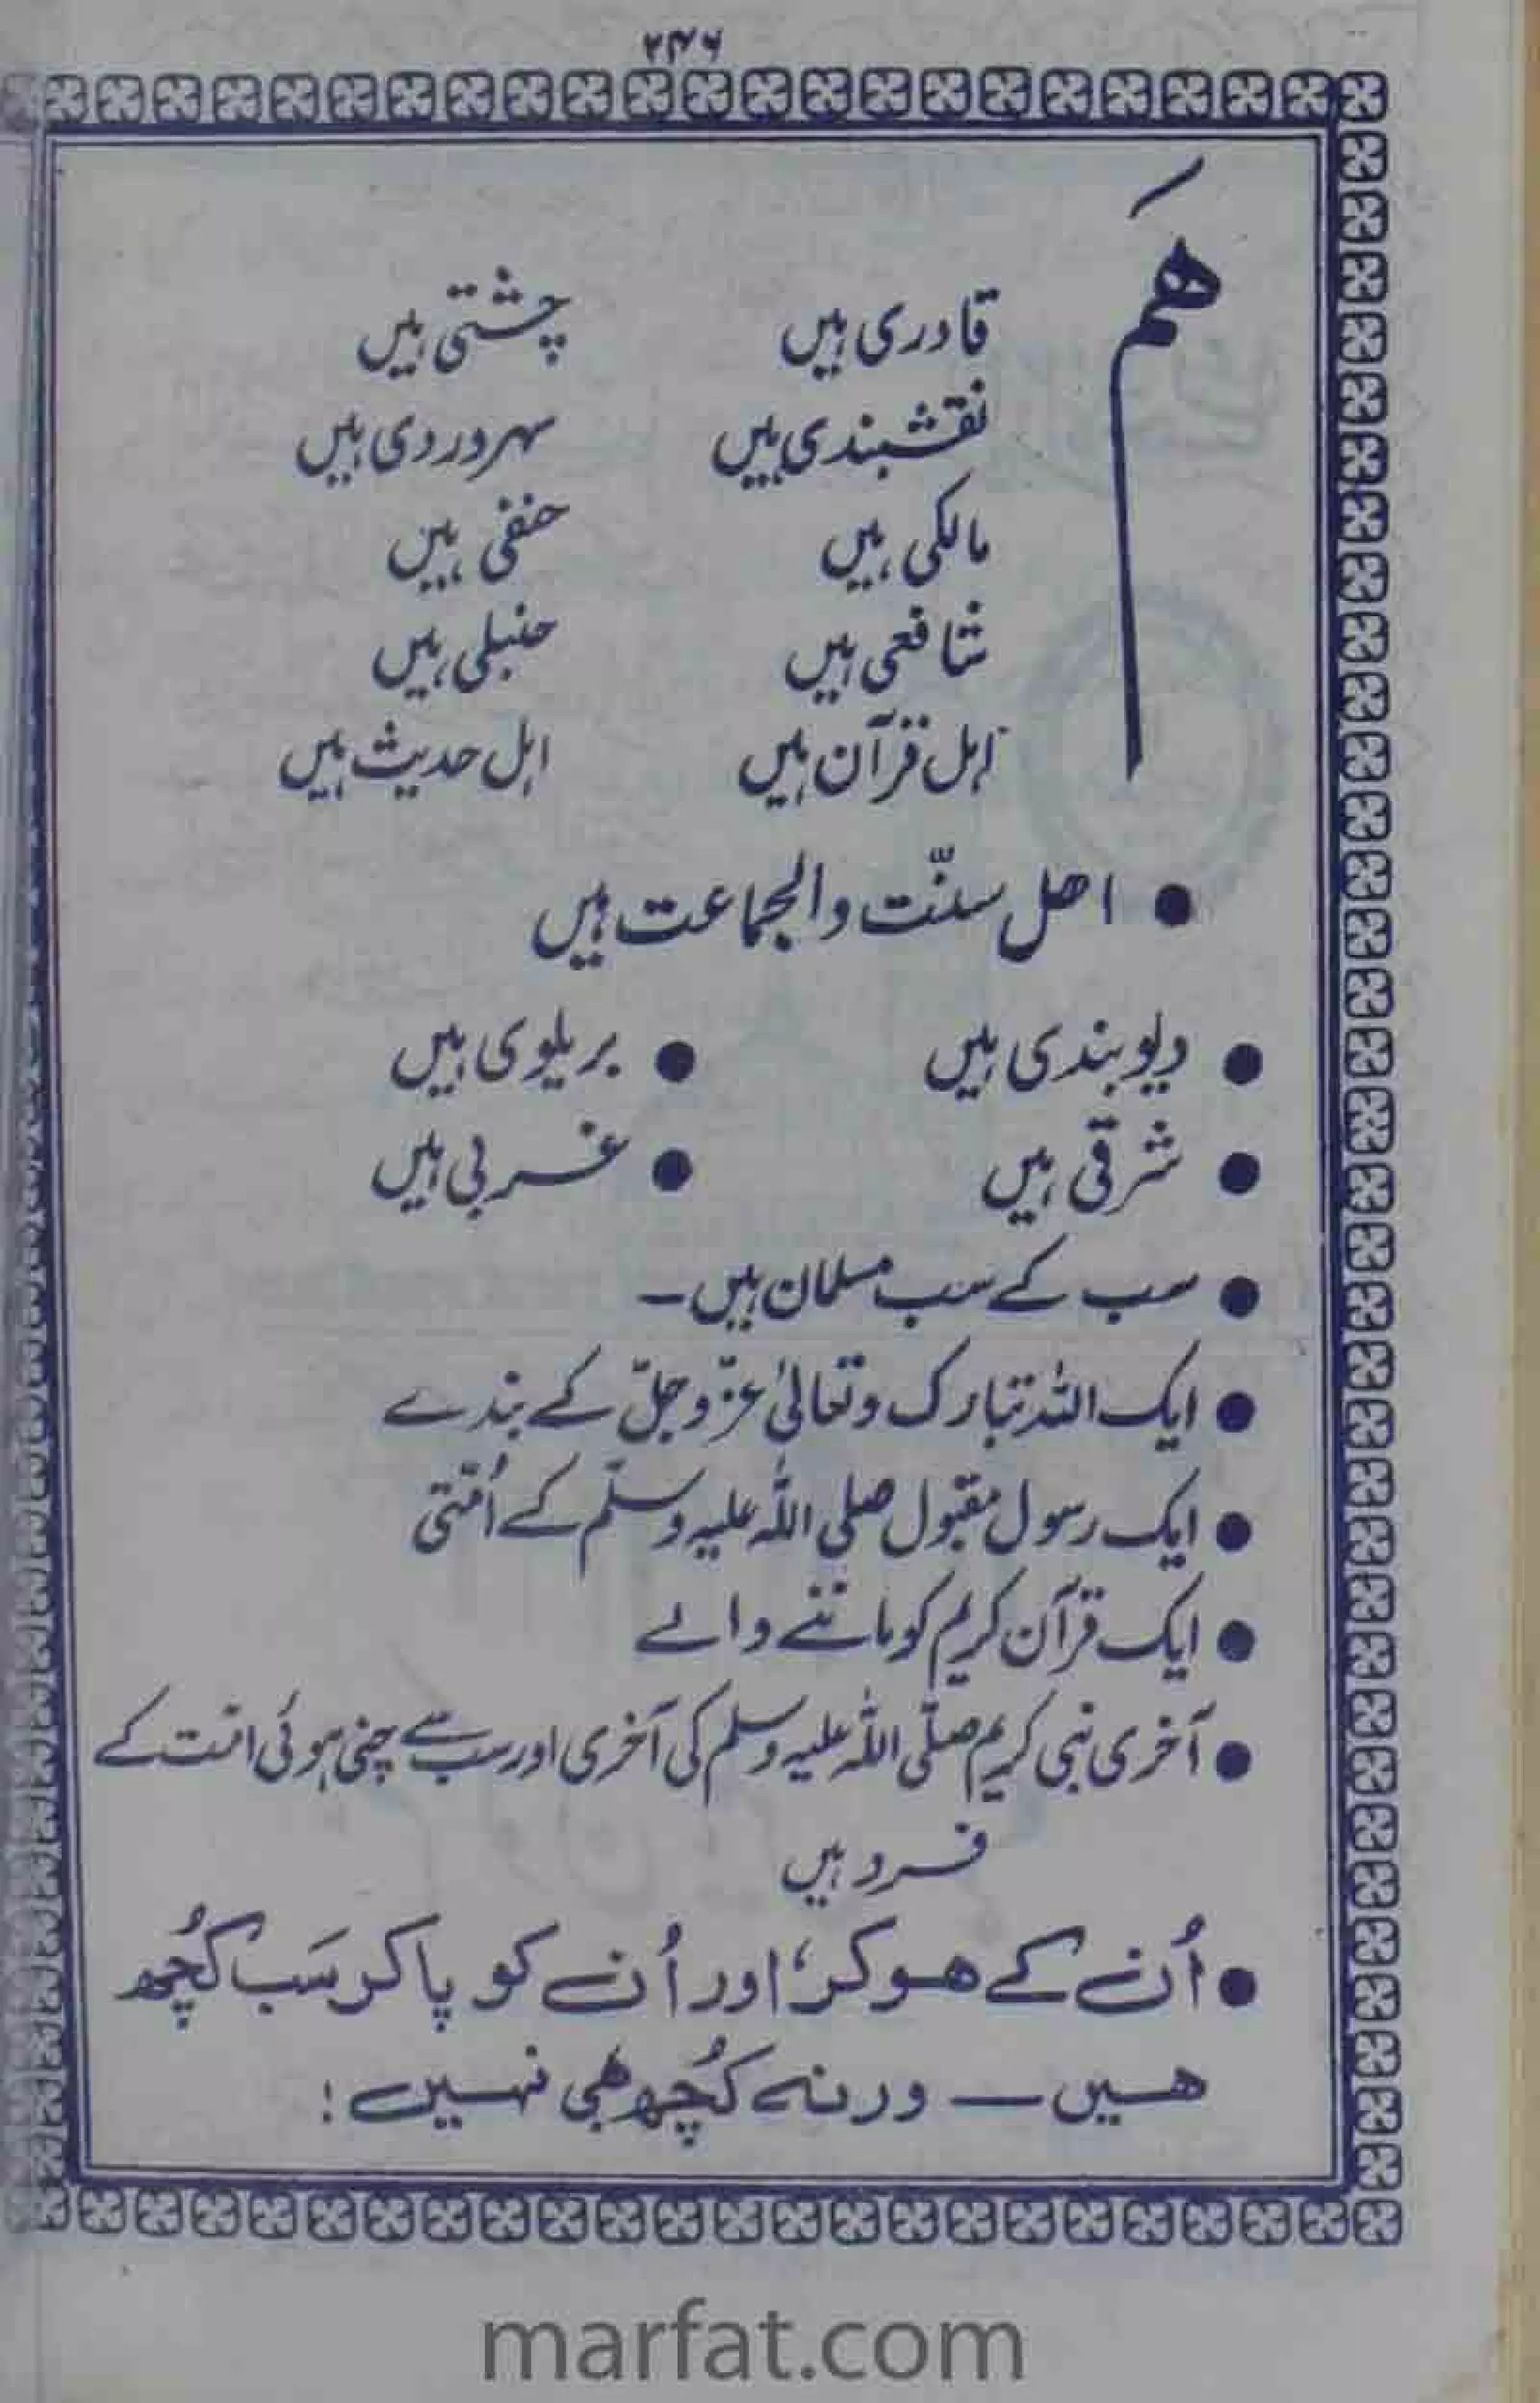 ۲۴۶
هَم
قادری ہیں چشتی ہیں
نقشبندی ہیں سہروردی ہیں
مالکی ہیں حنفی ہیں
شافعی ہیں حنبلی ہیں
اہل قرآن ہیں اہل حدیث ہیں
● اھل سنّت والجماعت ہیں
● دیوبندی ہیں ● بریلوی ہیں
● شرقی ہیں ● غربی ہیں
● سب کے سب مسلمان ہیں۔
● ایک اللہ تبارک وتعالیٰ عزّ وجلّ کے بندے
● ایک رسول مقبول صلی اللہ علیہ وسلّم کے اُمّتی
● ایک قرآن کریم کو ماننے والے
● آخری نبی کریم صلّی اللہ علیہ وسلم کی آخری اور سب سے چنی ہوئی امّت کے
فرد ہیں
● اُن کے ھوکر، اور اُن کو پاکر سَب کُچھ
ھیں — ورنہ کُچھ بھی نہیں!
marfat.com